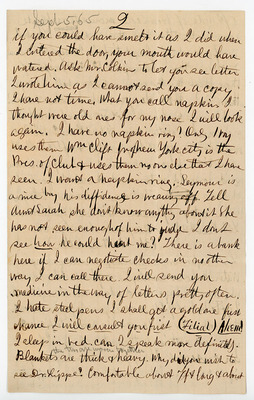 Sep. 5, 65
2
if you could have smelt it as I did when
I entered the door, your mouth would have
watered. Ask Mr. Colkin to let you see letter
I wrote him as I cannot send you a copy
I have not time. What you call napkin I
thought were old ones for my nose I will look
again. I have no napkin ring? Only 1 boy
uses them Wm Clift from New York city is the
Pres. of Club & uses them no one else that I have
seen. I want a napkin ring. Seymour is
a nice boy his diffidence is wearing off. Tell
Aunt Sarah she don't know anything about it She
has not seen enough of him to judge I don't
see how he could hurt me? There is a bank
here if I can negotiate checks in no other
way I can call there. I will send you
medicine in the way of letters pretty often.
I hate steel pens I shall get a gold one first
chance I will consult you first (Filial) Ahem!
I slay in bed. can I speak more definitely.
Blankets are thick & heavy. Why did you wish to
see Dr Comfortable about 7 ft long & about